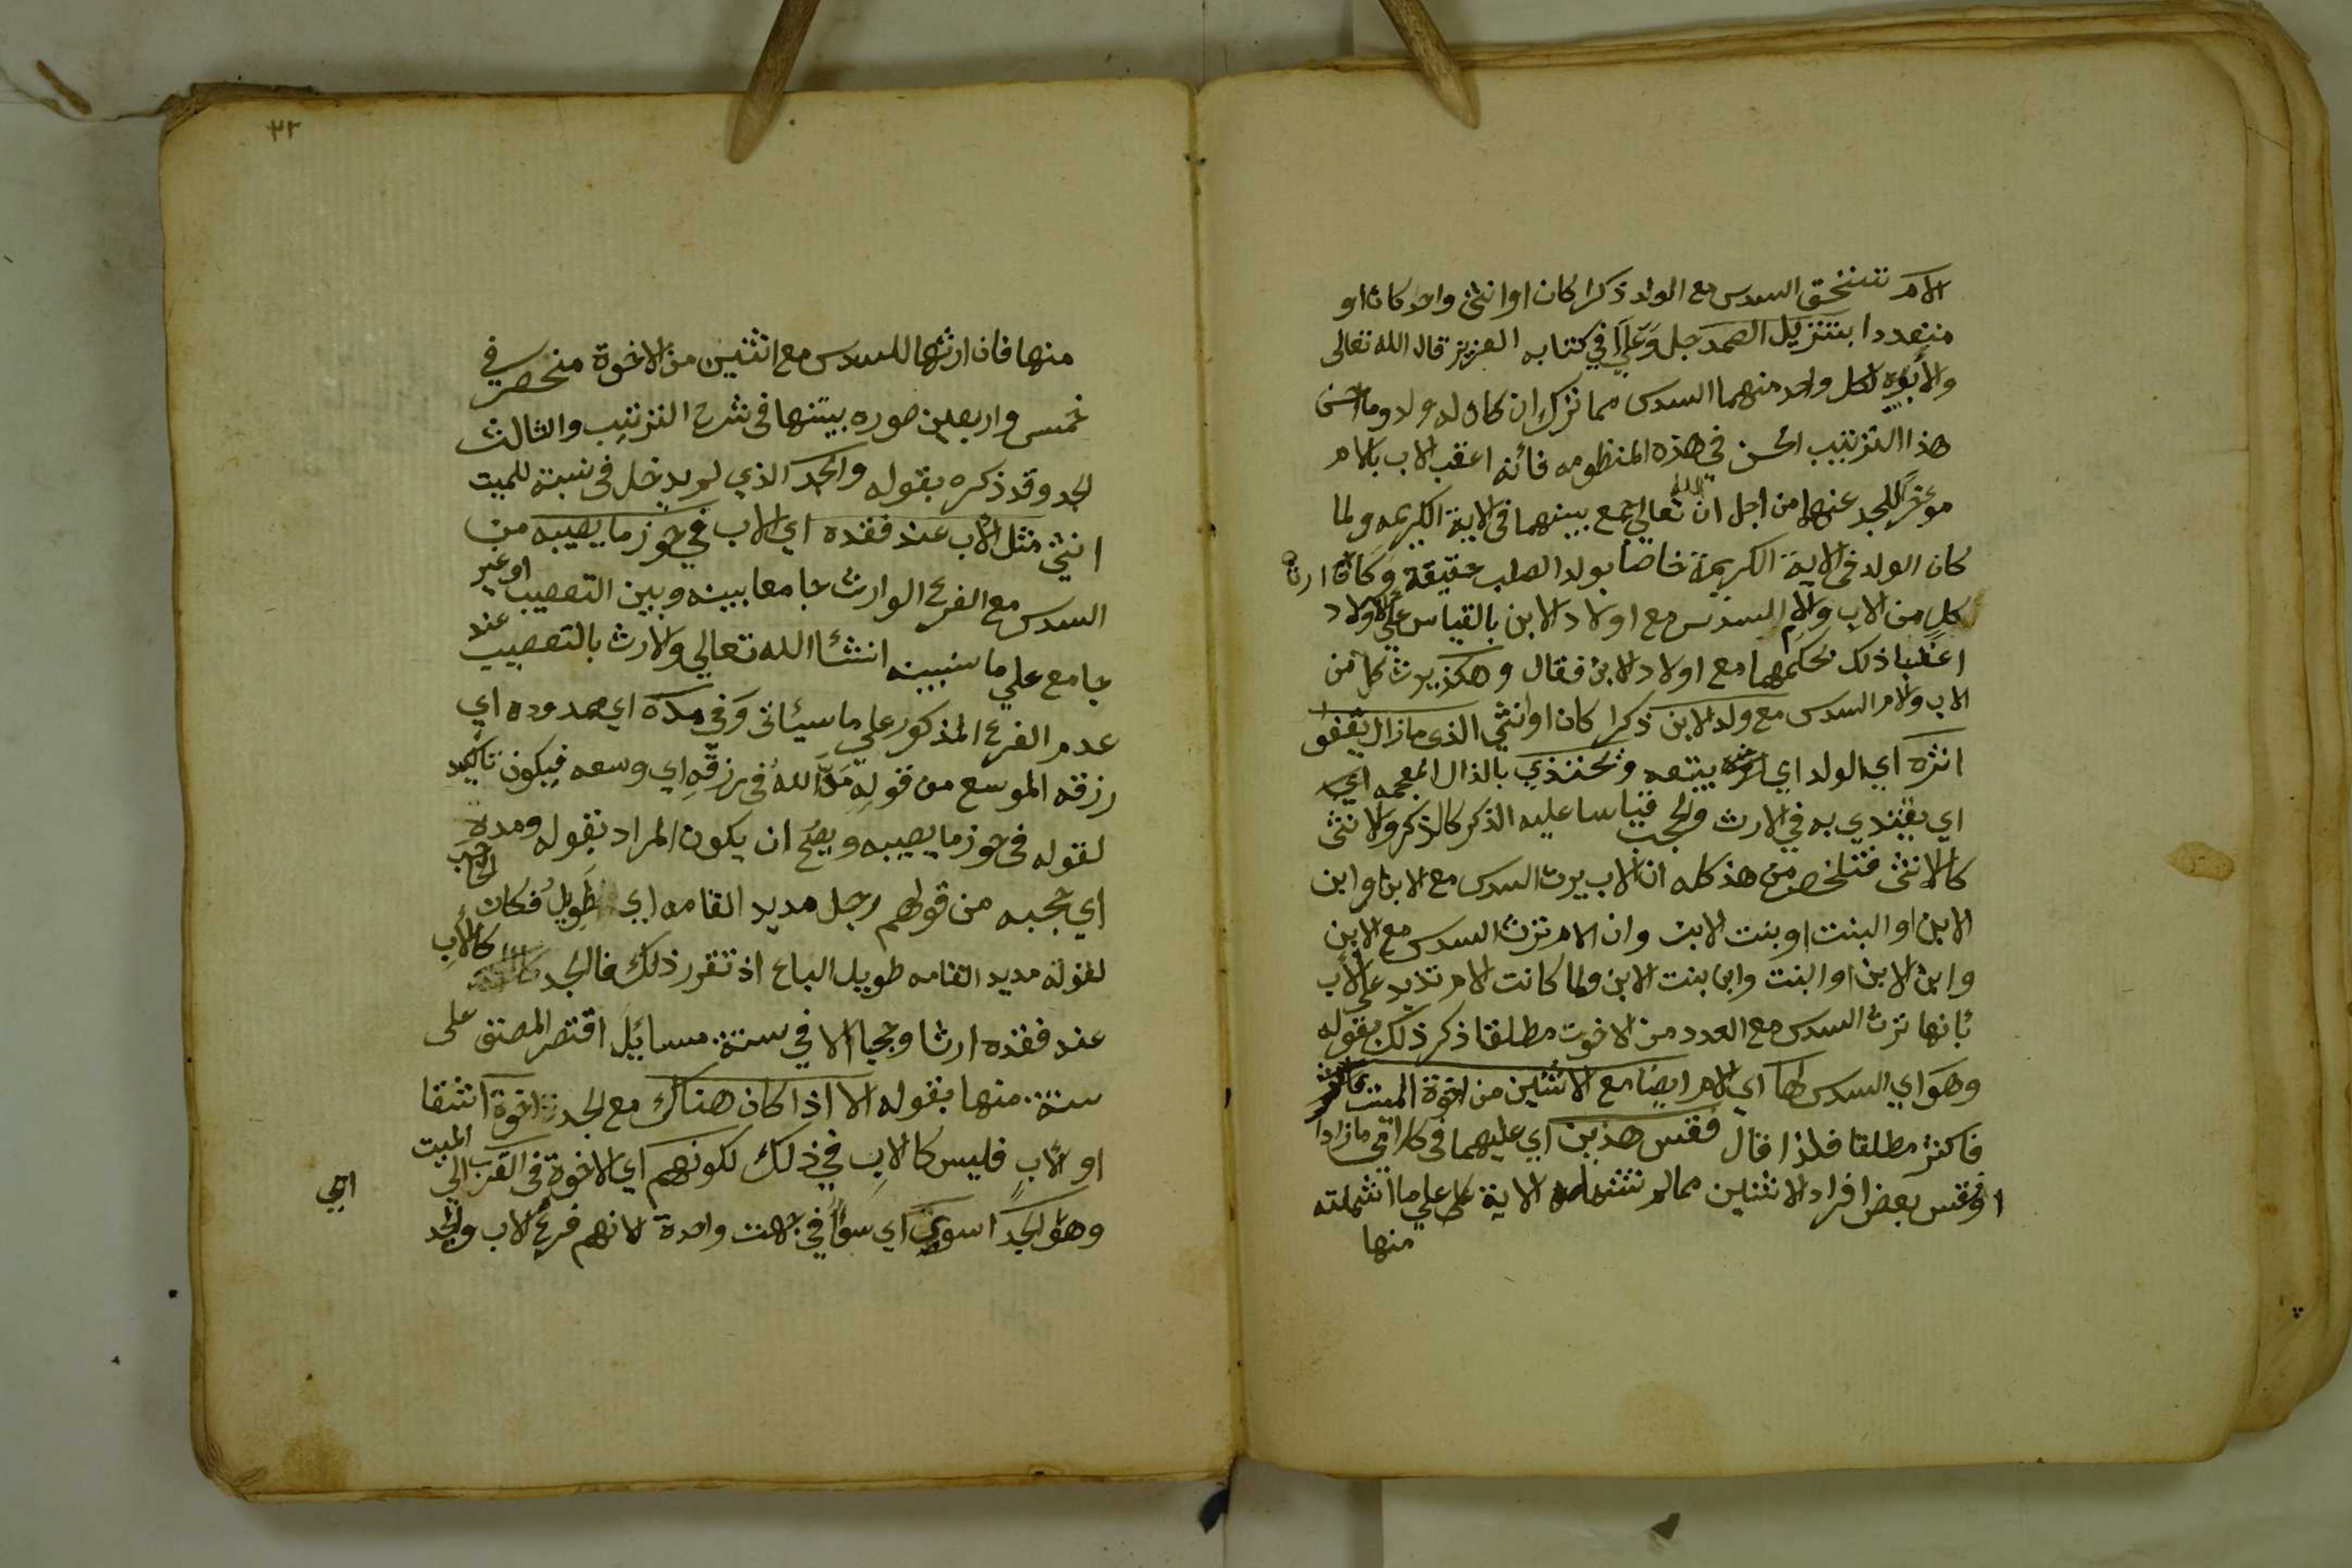 الام تستحق السدس مع الولد ذكرا كان او انثى واحد كان او
متعددا بتنزيل الصمد جل وعلا في كتابه العزيز قال الله تعالى
ولأبويه لكل واحد منهما السدس مما ترك ان كان له ولد وما احسن
هذا الترتيب الحسن في هذه المنظومه فانه اعقب الاب بالام
موخرا للجد عنهما من اجل ان الله تعالي جمع بينهما في الاية الكريمه ولما
كان الولد في الاية الكريمة خاصا بولد الصلب حقيقة وكان ارث
كل من الاب والام السدس مع اولاد الابن بالقياس علي الاولاد
اعقبا ذلك بحكمهما مع اولاد الابن فقال وهكذ يرث كل من
الاب ولام السدس مع ولد الابن ذكرا كان او انثي الذي ما زال يقفو
اثره اي الولد اي يتبعه ويحتذي بالذال المعجمه اي
اي يقتدي به في الارث والحجب قياسا عليه الذكر كالذكر ولانثى
كالانثى فتلخص من هذ كله ان الاب يرث السدس مع الابن وابن
الابن او البنت او بنت الابن وان الام ترث السدس مع الابن
وابن الابن او البنت وابن بنت الابن ولما كانت الام تزيد علي الأب
بانها ترث السدس مع العدد من الاخوت مطلقا ذكر ذلك بقوله
وهو اي السدس لها اي الام ايضا مع الاثنين من اخوة الميت
فاكثر مطلقا فلذا قال فقس هذين اي عليهما في كلامي ما زادا
او فقس بعض افراد الاثنين مما لم تشمله الاية علي ما اشملته
منها
٣٢
منها فان ارثها للسدس مع اثنين من الاخوة منحصر في
خمس واربعين صوره بيتنها في شرح الترتيب والثالث
الجد وقد ذكره بقوله والجد الذي لم يدخل في نسبته للميت
انثي مثل الأب عند فقده اي الاب في حوز ما يصيبه من
السدس مع الفرع الوارث جامعا بينه وبين التعصيب او غير
جامع علي ما سنبينه انشا الله تعالي ولارث بالتعصيب عند
عدم الفرع المذكور علي ما سيئاتى وفي مده اي ممدوده اي
رزقه الموسع من قوله مد الله في رزقه اي وسعه فيكون تاكيد
لقوله في حوز ما يصيبه ويصح ان يكون المراد بقوله ومده
اي حجبه من قولهم رجل مديد القامه اي طويل فكان الحاجب
لقوله مديد القامه طويل الباع اذ تقرر ذلك فالجد كالأب
عند فقده ارثا وحجبا الا في ستة مسايل اقتصر المصنف على
ستة منها بقوله الا اذا كان هناك مع الجد اخوة اشقا
او لأب فليس كالاب في ذلك لكونهم اي الاخوة في القرب الي الميت
وهو الجد اسوة اي سوأ في جهت واحدة لانهم فرع الاب والجد